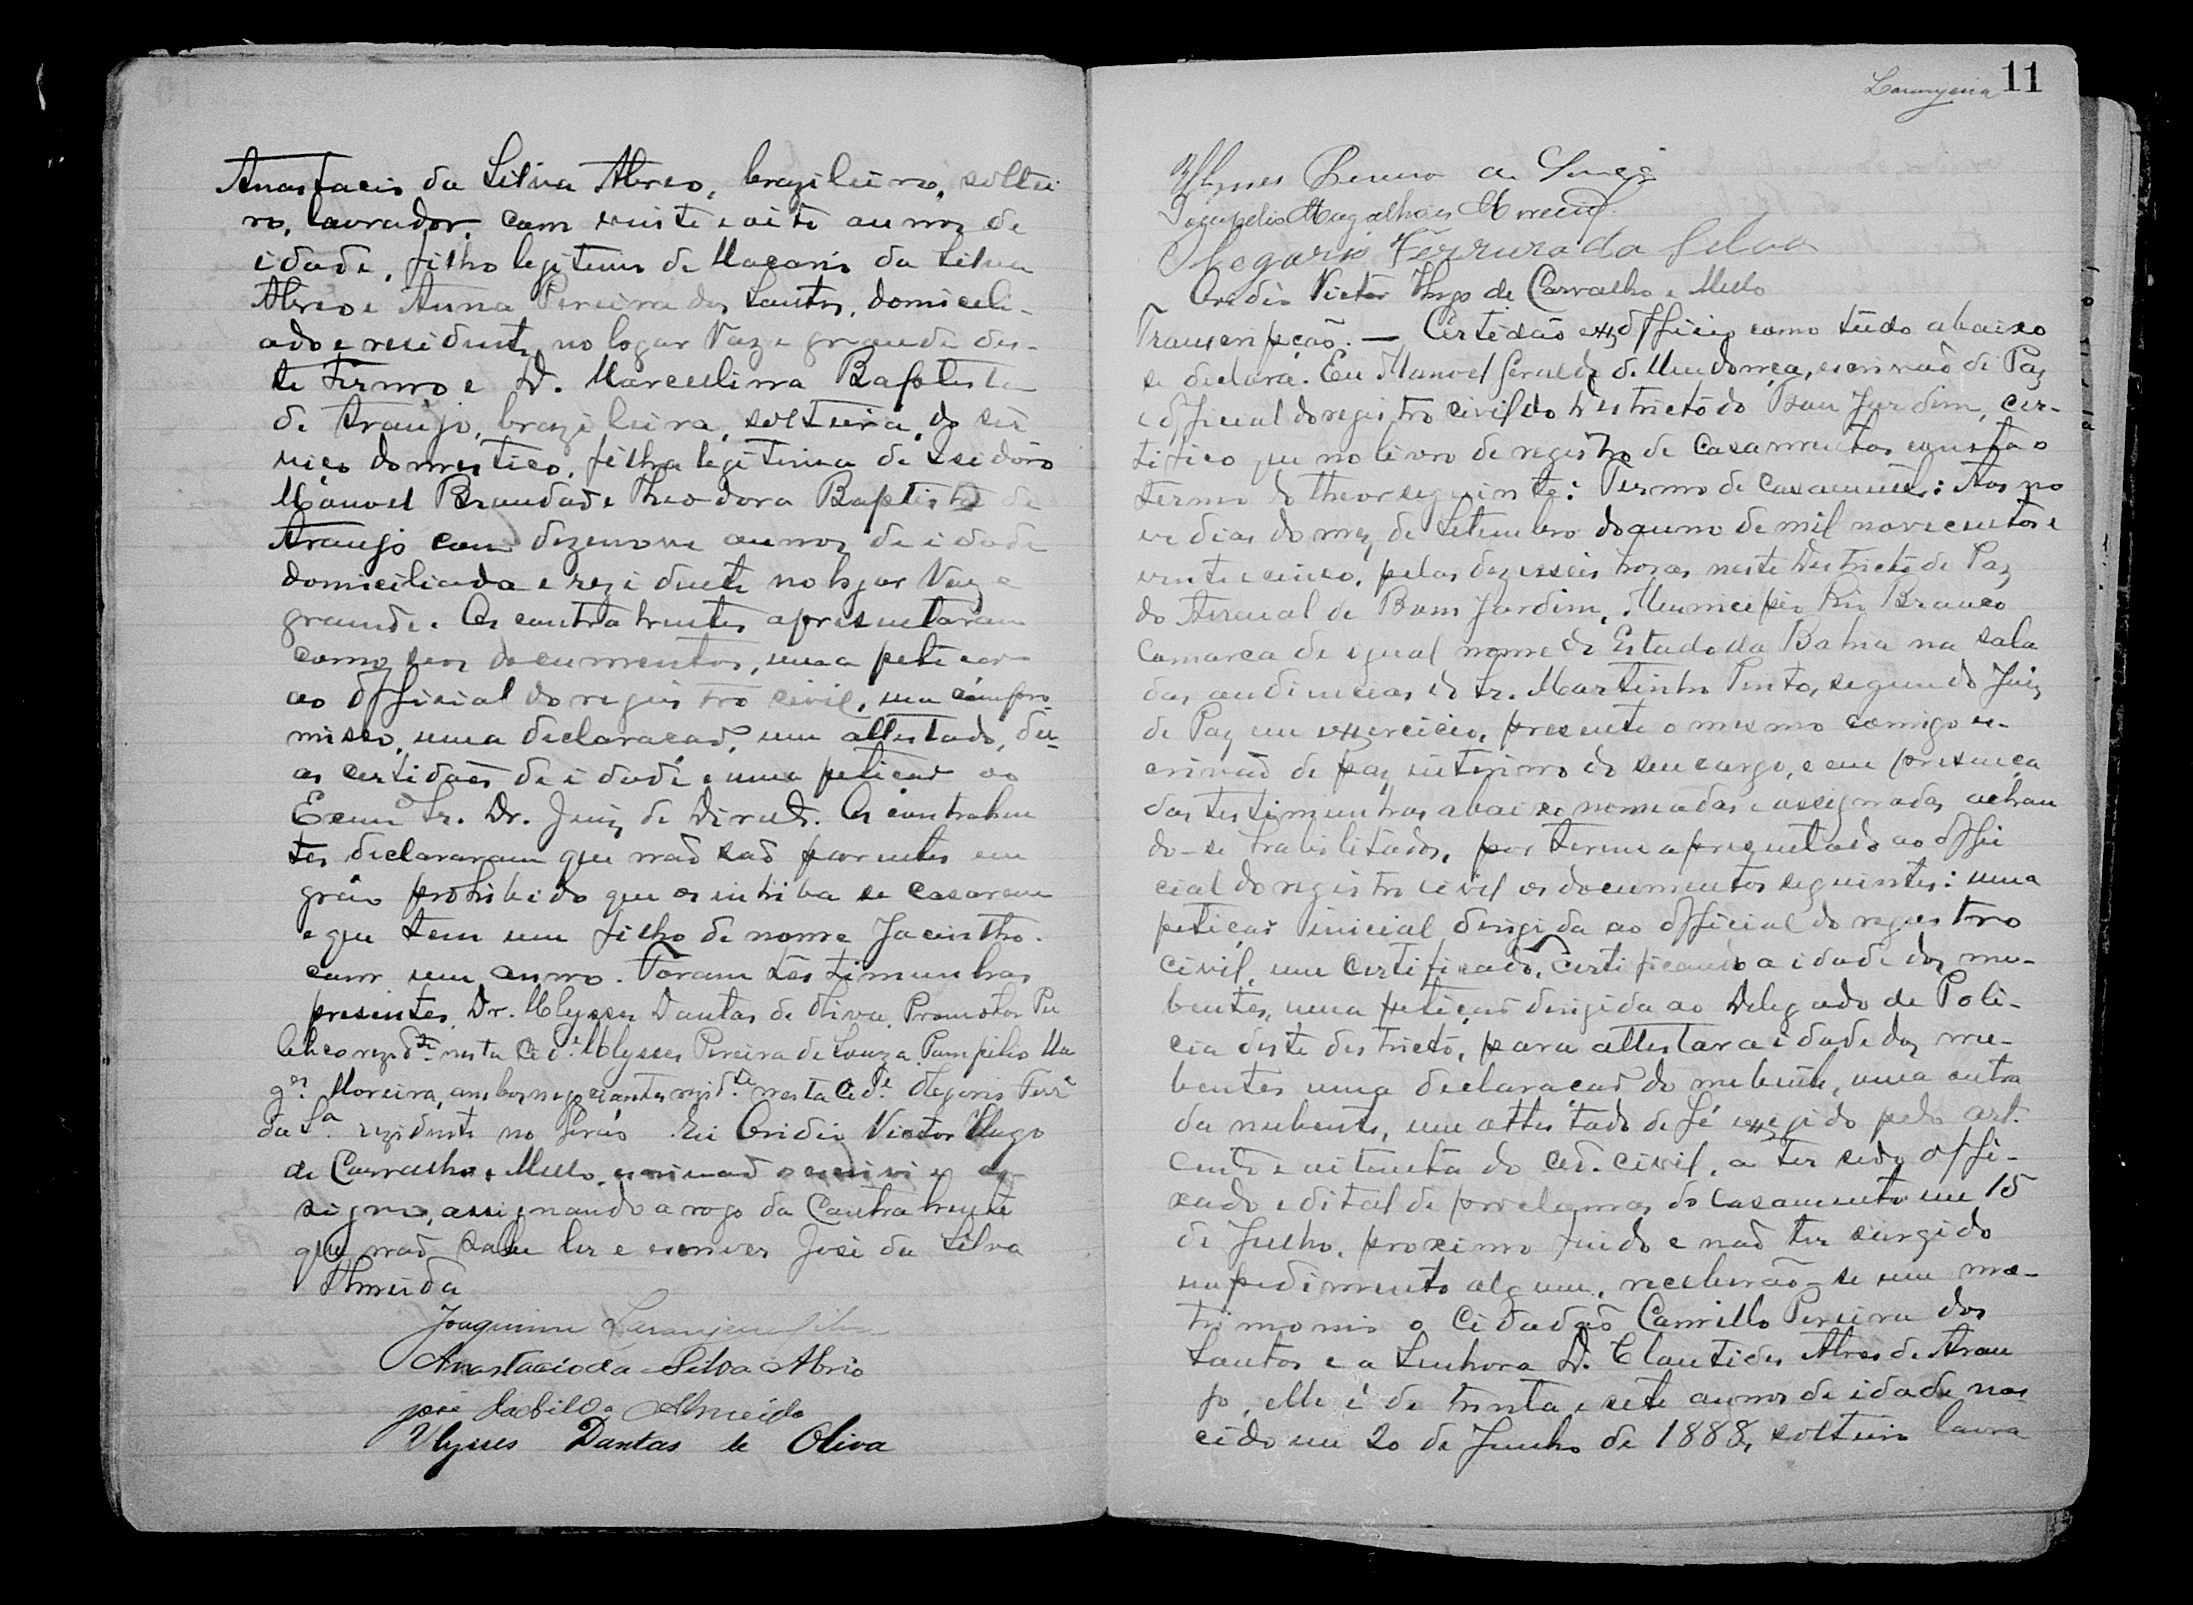 Anastacio da Silva Abreo, brazileiro, soltei
ro, lavrador, com vinte e oito annos de
idade, filho legitimo de Macario da Silva
Abreo e Anna Pereira dos Santos, domicili-
ado e residente no logar Vaze grande des-
te termo e D. Marculina Baptista
de Araujo, brazileira, solteira, do ser
viço domestico, filha legitima de Isidoro
Manoel Brandad e Theodora Baptista de
Araujo com dezenove annos de idade
domiciliada e rezidente no logar Vaze
grande. Os contrahentes apresentaram
como seos documentos, uma peticao
ao Official do registro civil, um compro-
misso, uma declaracaõ, um attestado, du-
as certidaõs de idade e uma peticaõ ao
Exmº Sr. Dr. Juiz de Direito. Os contrahen
tes declararam que naõ saõ parentes em
gráo prohibido que os iniba se casarem
e que tem um filho de nome Jacintho.
com um anno. Foram testimunhas
presentes, Dr. Ulysses Dantas de Oliva, Promotor Pu
blico rezdte nesta Cide Ulysses Pereira de Souza, Pompilio Ma
ges Moreira, ambos negociantes rezidtes nesta Cide Olegario Ferrª
da Sª rezidente no Gerás. Eu Ovidio Victor Hugo
de Carvalho e Mello, escrivaõ o escrivi e as-
signo, assignando a rogo da Contrahente
que naõ sabe ler e escrever José da Silva
Almeida
Joaquim Laranjeira
Anastacio da Silva Abrio
josé da Silva Almeida
Ulysses Dantas de Oliva
Laranjeira 11
Ulysses Pereira de Souza
Pompilio Magalhães Moreira
Olegario Ferrura da Silva
Ovidio Victor Hugo de Carvalho e Mello
Transcripçaõ. — Certidaõ ex-officio como tudo abaixo
se declara. Eu Manoel Geraldo de Mendonça, escrivaõ de Paz
e official do registro civil do districto do Bom Jardim, cer-
tifico que no livro de registro de casamentos consta o
termo do theor seguinte: Termo de casamento: Aos no
ve dias do mez de Setembro do anno de mil novecentos e
vinte e cinco, pelas dezesseis horas neste Districto de Paz
do Arraial de Bom Jardim, Municipio Rio Branco
Comarca de egual nome do Estado da Bahia na sala
das audiencias do Sr. Martinho Pinto, segundo Juiz
de Paz em exercicio, presente o mesmo comigo es-
crivaõ de paz interino do seu cargo, e em presença
das testimunhas abaixo nomeadas e assignadas achan
do-se habilitados, por terem apresentado ao offi
cial do registro civil os documentos seguintes: uma
petiçaõ inicial dirigida ao official do registro
civil, um certificado, certificando a idade dos nu-
bentes, uma petiçaõ dirigida ao Delegado de Poli-
cia deste districto, para attestar a idade dos nu-
bentes uma declaraçaõ do nubente, uma outra
da nubente, um attestado de fé exegido pelo art.
cento e oitenta do cod. civil, a ter sido affi-
xado edital de proclamas do casamento em 15
de Julho, proximo findo e naõ ter surgido
impedimento algum, receberão-se em ma-
trimonio o Cidadaõ Camillo Pereira dos
Santos e a Senhora D. Clautides Alves de Arau
jo, elle é de trinta e sete annos de idade nas
cido em 20 de Junho de 1888, solteiro lavra